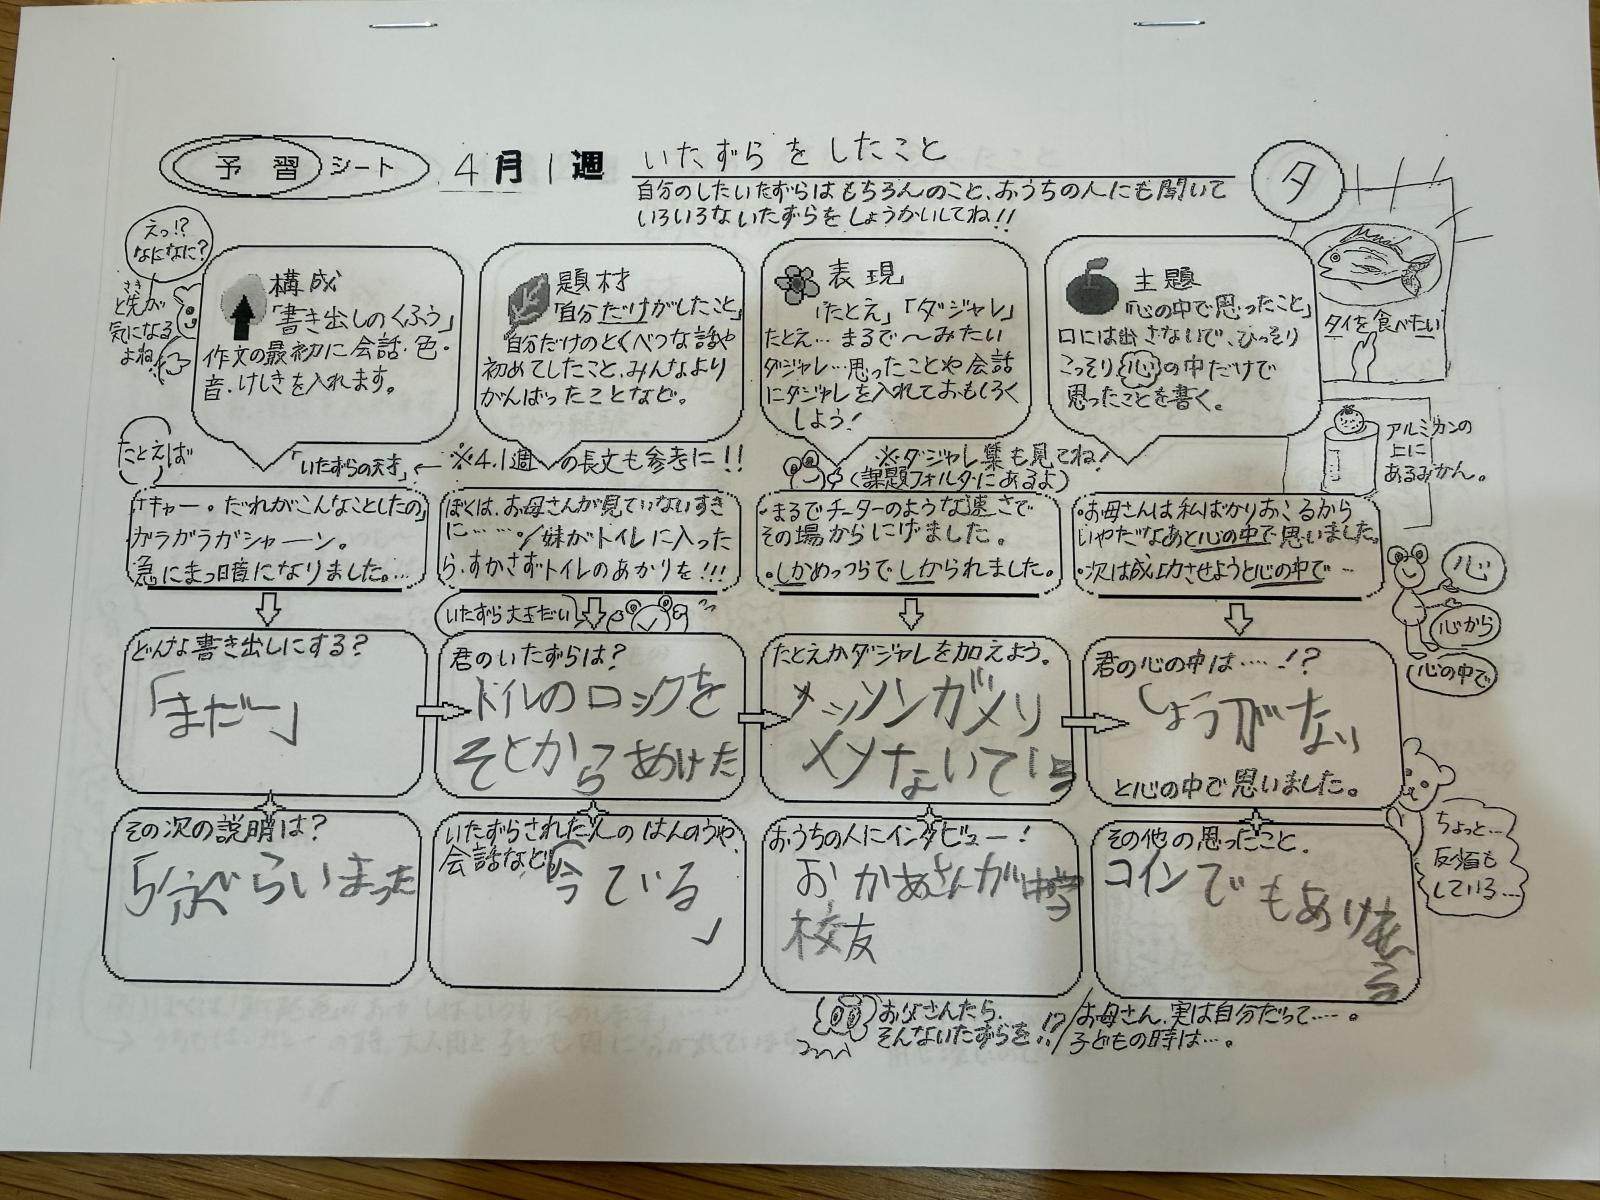 予習シート 4月1週 いたずらをしたこと
自分のしたいたずらはもちろんのこと、おうちの人にも聞いて
いろいろないたずらをしょうかいしてね!!
タ
えっ!?
なになに?
さき
と先が
気になる
よね
構成
「書き出しのくふう」
作文の最初に会話・色・
音・けしきを入れます。
題材
「自分だけがしたこと」
自分だけのとくべつな話や
初めてしたこと、みんなより
がんばったことなど。
表現
「たとえ」「ダジャレ」
たとえ…まるで〜みたい
ダジャレ…思ったことや会話
にダジャレを入れておもしろく
しよう!
主題
「心の中で思ったこと」
口には出さないで、ひっそり
こっそり心の中だけで
思ったことを書く。
タイを食べたい
アルミカンの
上に
あるみかん。
たとえば
「いたずらの天才」←
※4.1週の長文も参考に!!
※ダジャレ集も見てね!
(課題フォルダにあるよ)
「キャー。だれがこんなことしたの」
ガラガラガシャーン。
急にまっ暗になりました。…
ぼくは、お母さんが見ていないすき
に……。/妹がトイレに入った
ら、すかさずトイレのあかりを!!!
・まるでチーターのような速さで
その場からにげました。
・しかめっつらでしかられました。
・お母さんは私ばかりおこるから
いやだなあと心の中で思いました。
・次は成功させようと心の中で…
心
心から
心の中で
いたずら大王だい
どんな書き出しにする?
「まだー」
君のいたずらは?
トイレのロックを
そとからあけた
たとえかダジャレを加えよう。
メッソンガメリ
メソないている
君の心の中は……!?
しょうがない
と心の中で思いました。
その次の説明は?
5分くらいまった
いたずらされた人のはんのうや、
会話など。
「今ている
」
おうちの人にインタビュー!
おかあさんが
校友
その他の思ったこと.
コインでもあけ
る
ちょっと…
反省も
している…
お父さんたら、
そんないたずらを!?
お母さん、実は自分だって…。
子どもの時は…。